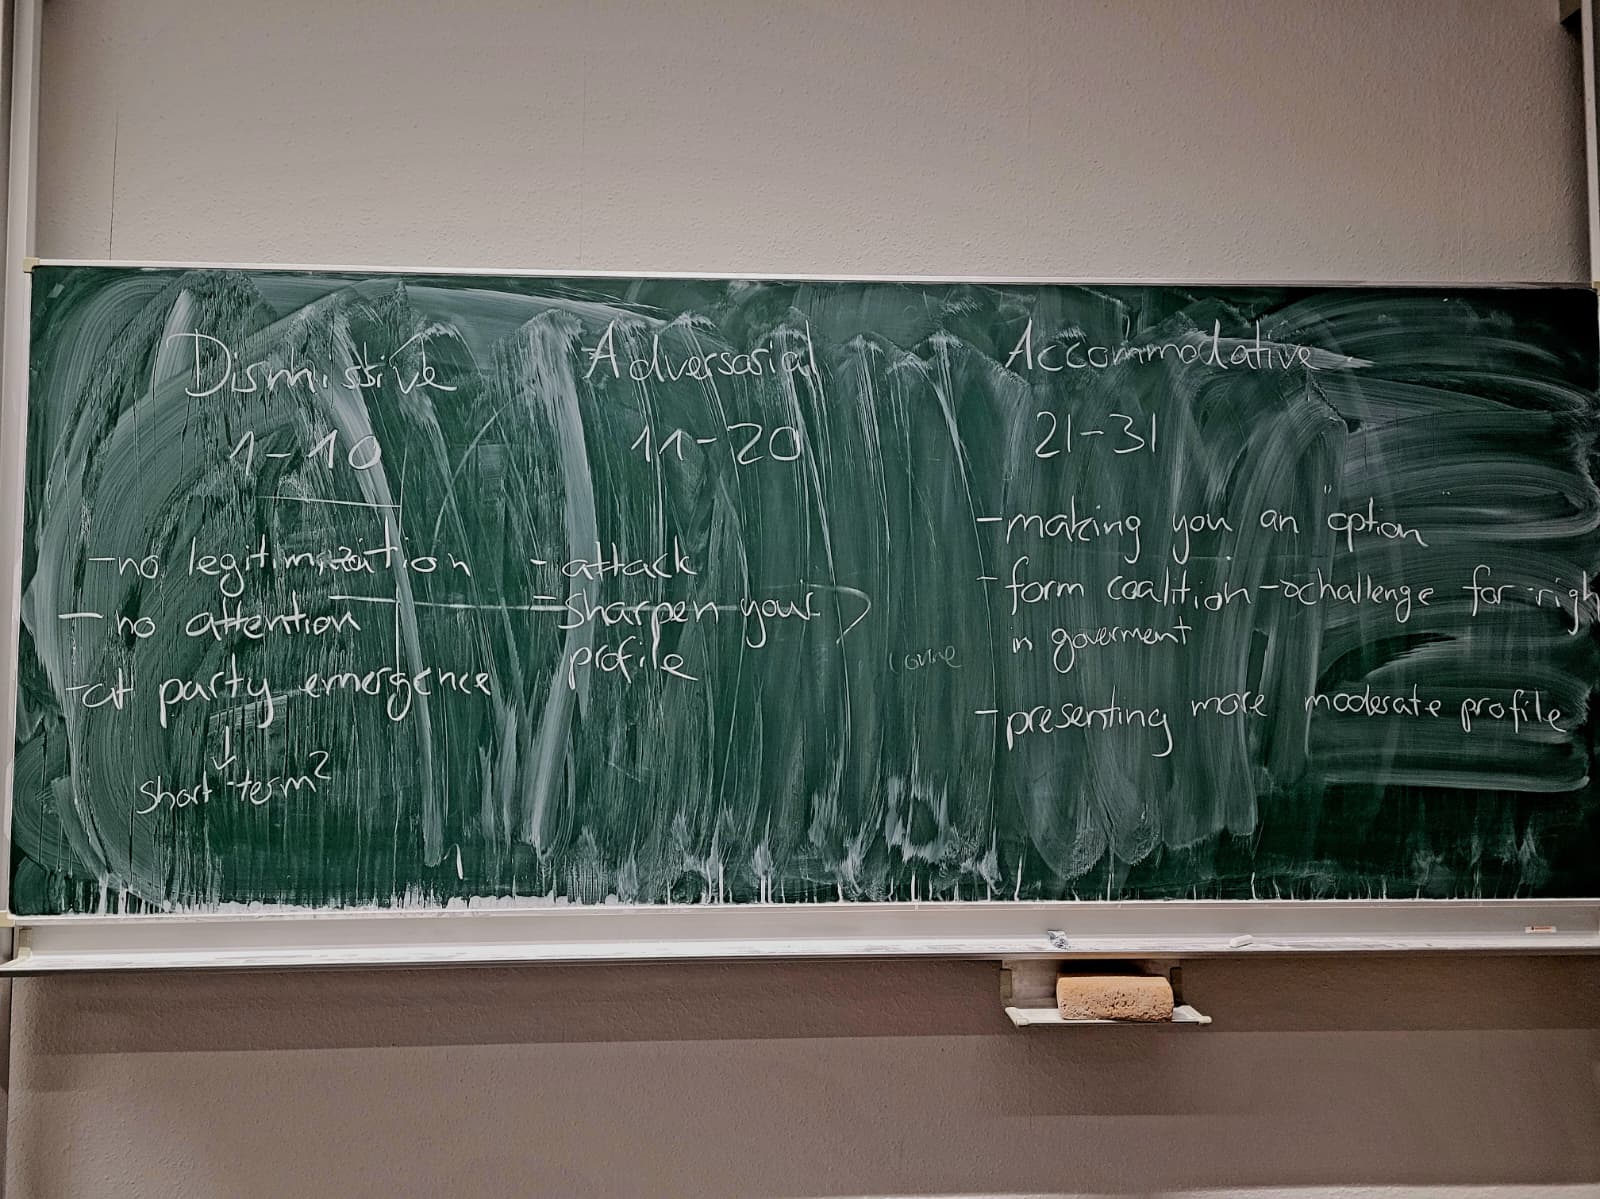 Dismissive
1-10
-no legitimization
-no attention
-at party emergence
↓
short-term?
Adversarial
11-20
-attack
-sharpen your
profile
Accommodative
21-31
-making you an "option"
-form coalition→challenge for righ
in goverment
-presenting more moderate profile